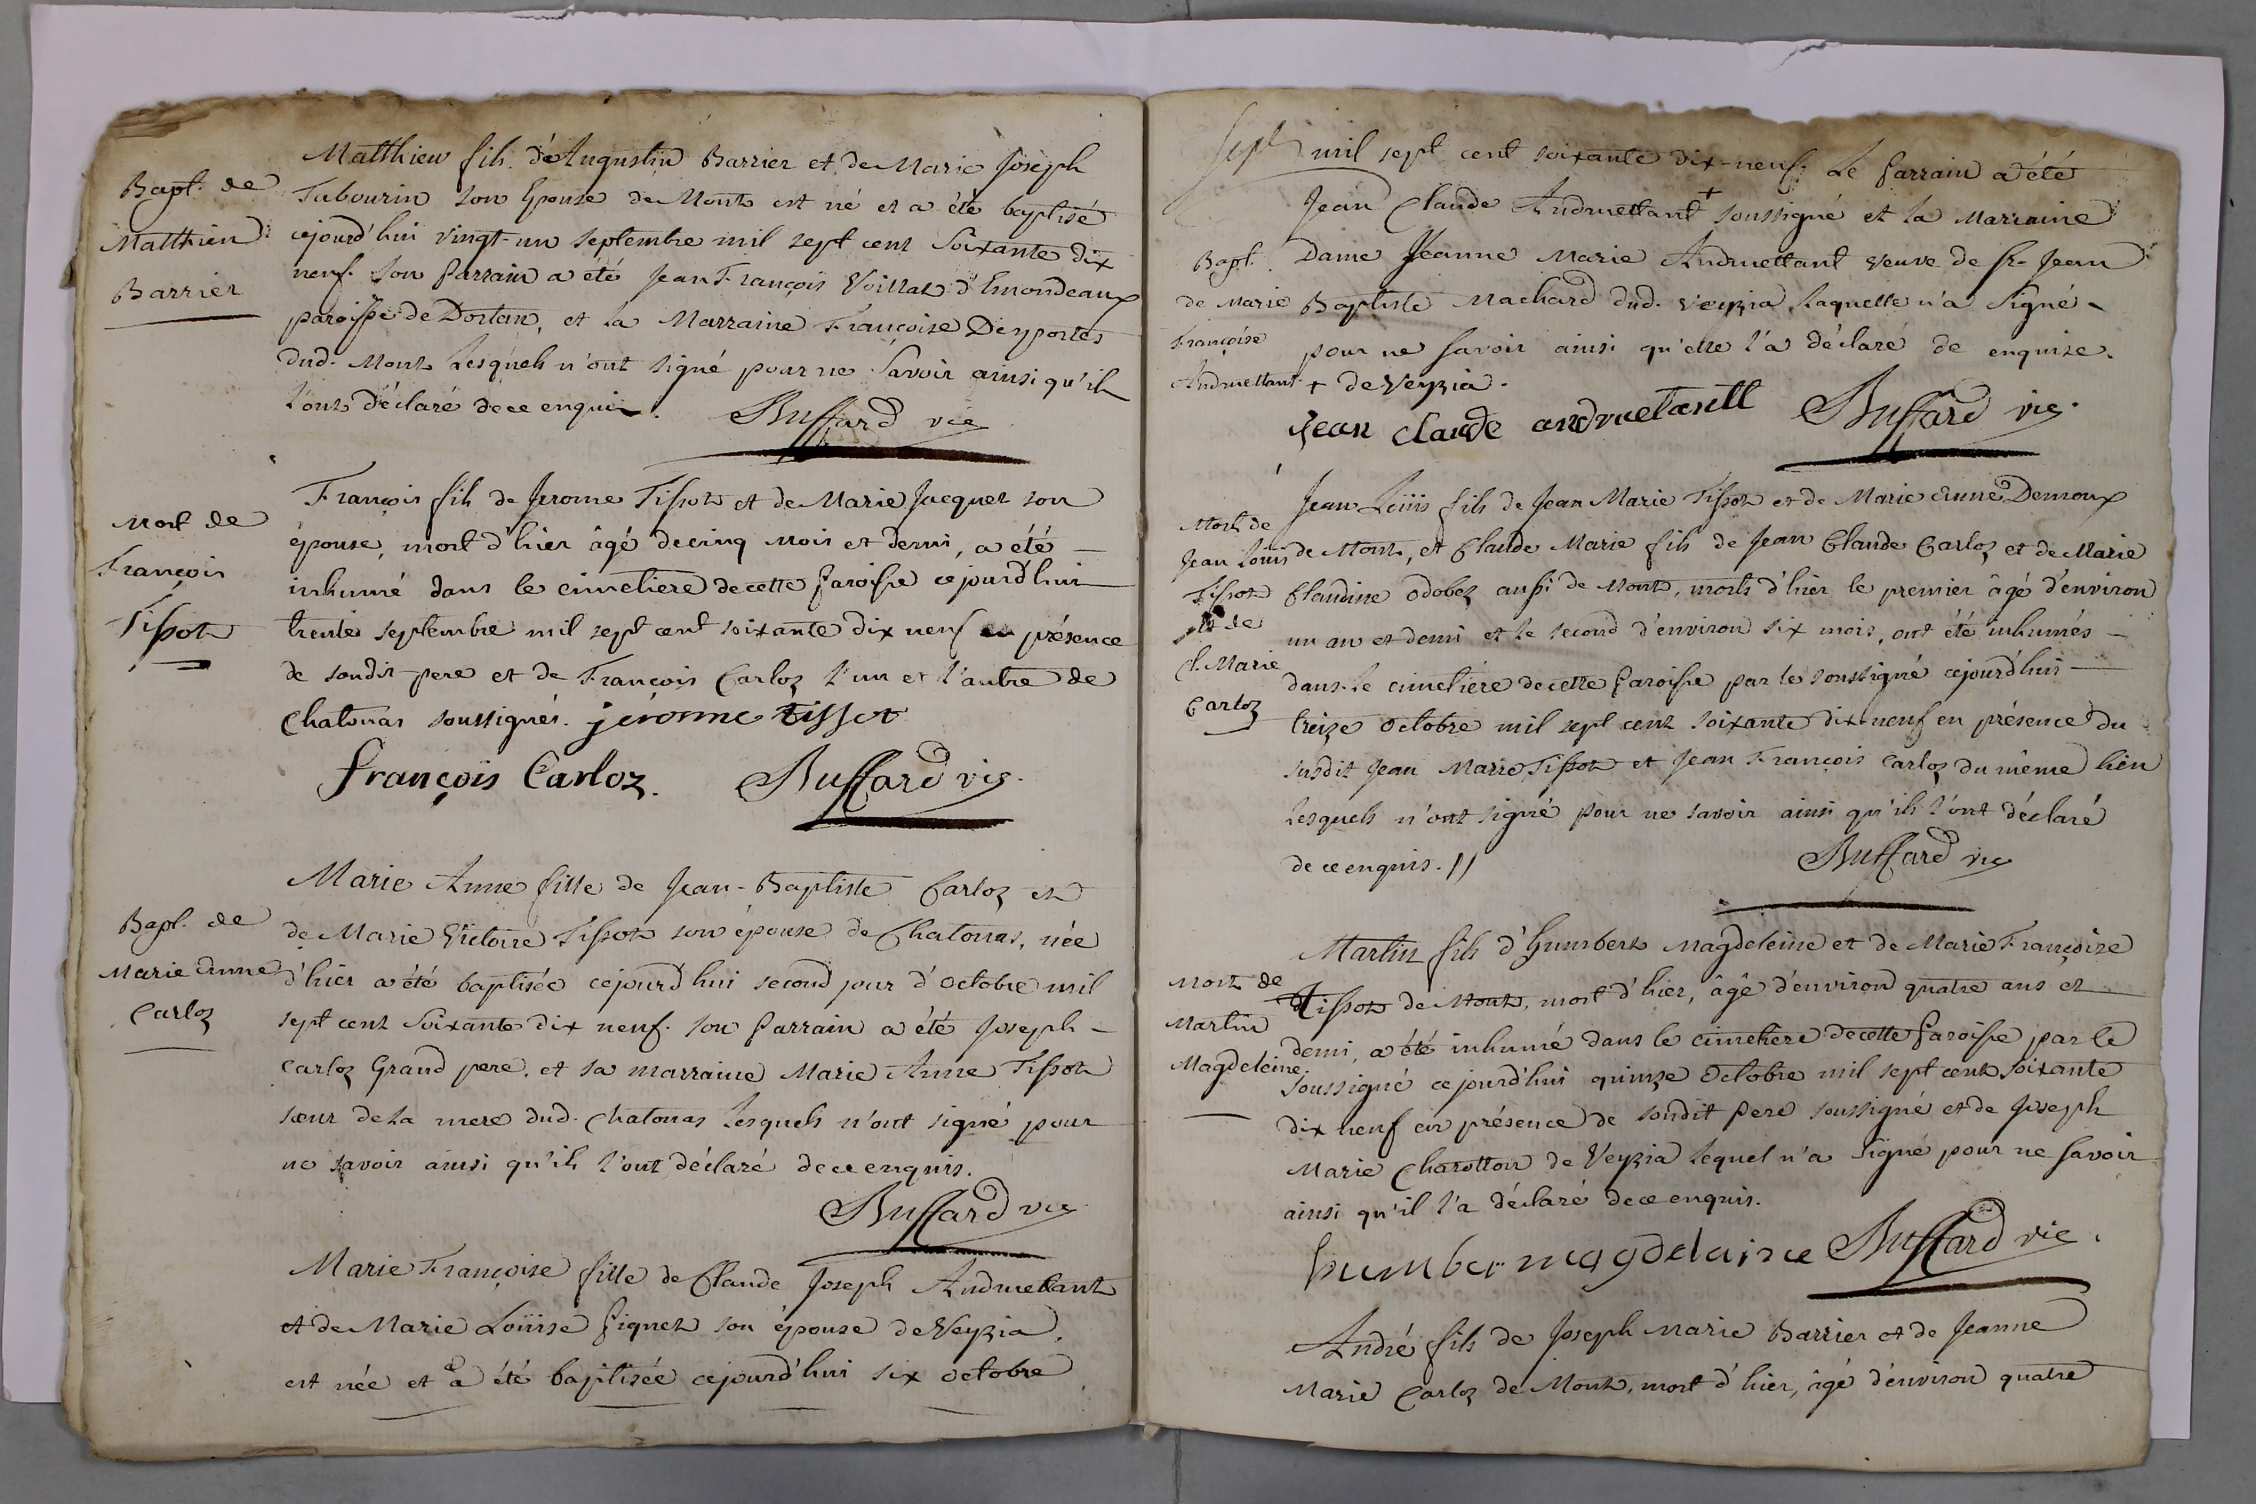 Bapt. de
Matthieu
Barrier
Matthieu fils d'Augustin Barrier et de Marie Joseph
Tabourin son épouse de Mont est né et a été baptisé
cejourd'hui vingt-un septembre mil sept cent soixante dix
neuf. son parrain a été Jean François Voillat d'Emondeaux
paroisse de Dortan, et la Marraine Françoise Desportes
dud. Mont lesquels n'ont signé pour ne savoir ainsi qu'ils
l'ont déclaré de ce enquis. Buffard vic
Mort de
François
Tissot
François fils de Jerome Tissot et de Marie Jacquet son
épouse, mort d'hier âgé de cinq mois et demi, a été
inhumé dans le cimetiere de cette paroisse cejourd'hui
trente septembre mil sept cent soixante dix neuf en présence
de sondit pere et de François Carloz l'un et l'autre de
Chatonas soussignés. jerome tissot
françois Carloz. Buffard vic.
Bapt. de
Marie Anne
Carloz
Marie Anne fille de Jean-Baptiste Carloz et
de Marie Victoire Tissot son épouse de Chatonas, née
d'hier a été baptisée cejourd'hui second jour d'octobre mil
sept cent soixante dix neuf. son parrain a été Joseph
Carloz Grand pere, et sa marraine Marie Anne Tissot
sœur de la mere dud. Chatonas lesquels n'ont signé pour
ne savoir ainsi qu'ils l'ont déclaré de ce enquis.
Buffard vic
Marie Françoise fille de Claude Joseph Andruettant
et de Marie Loüise Piquet son épouse de Veyzia,
est née et a été baptisée cejourd'hui six octobre
mil sept cent soixante dix-neuf. Le parrain a été
Jean Claude Andruettant + soussigné et la Marraine
Bapt.
de Marie
Françoise
Andruettant
Dame Jeanne Marie Andruettant veuve de Sr. Jean
Baptiste Machard dud. Veyzia, laquelle n'a signé
pour ne savoir ainsi qu'elle l'a déclaré de enquise.
+ de Veyzia.
jean claude andruetantt Buffard vic.
Mort de
Jean Louis
Tissot
et de
Cl. Marie
Carloz
Jean Loüis fils de Jean Marie Tissot et de Marie Anne Demoux
de Mont, et Claude Marie fils de Jean Claude Carloz et de Marie
Claudine Odobez aussi de Mont, morts d'hier le premier âgé d'environ
un an et demi et le second d'environ six mois, ont été inhumés
dans le cimetiere de cette paroisse par le soussigné cejourd'hui
treize octobre mil sept cent soixante dix-neuf en présence du
susdit Jean Marie Tissot et Jean François Carloz du même lieu
lesquels n'ont signé pour ne savoir ainsi qu'ils l'ont déclaré
de ce enquis. // Buffard vic
Mort de
Martin
Magdeleine
Martin fils d'Humbert Magdeleine et de Marie Françoise
Tissot de Mont, mort d'hier, âgé d'environ quatre ans et
demi, a été inhumé dans le cimetiere de cette paroisse par le
soussigné cejourd'hui quinze octobre mil sept cent soixante
dix neuf en présence de sondit pere soussigné et de Joseph
Marie Charotton de Veyzia lequel n'a signé pour ne savoir
ainsi qu'il l'a déclaré de ce enquis.
humber magdelaine Buffard vic.
André fils de Joseph Marie Barrier et de Jeanne
Marie Carloz de Mont, mort d'hier, âgé d'environ quatre